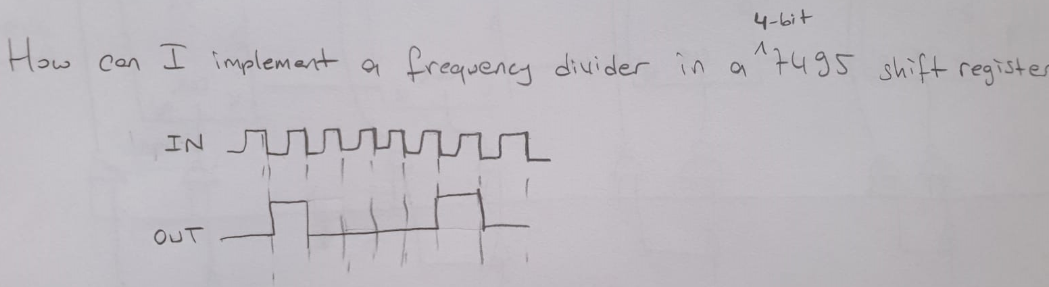 How can I implement a frequency divider in a 4-bit 7495 shift register
IN
OUT